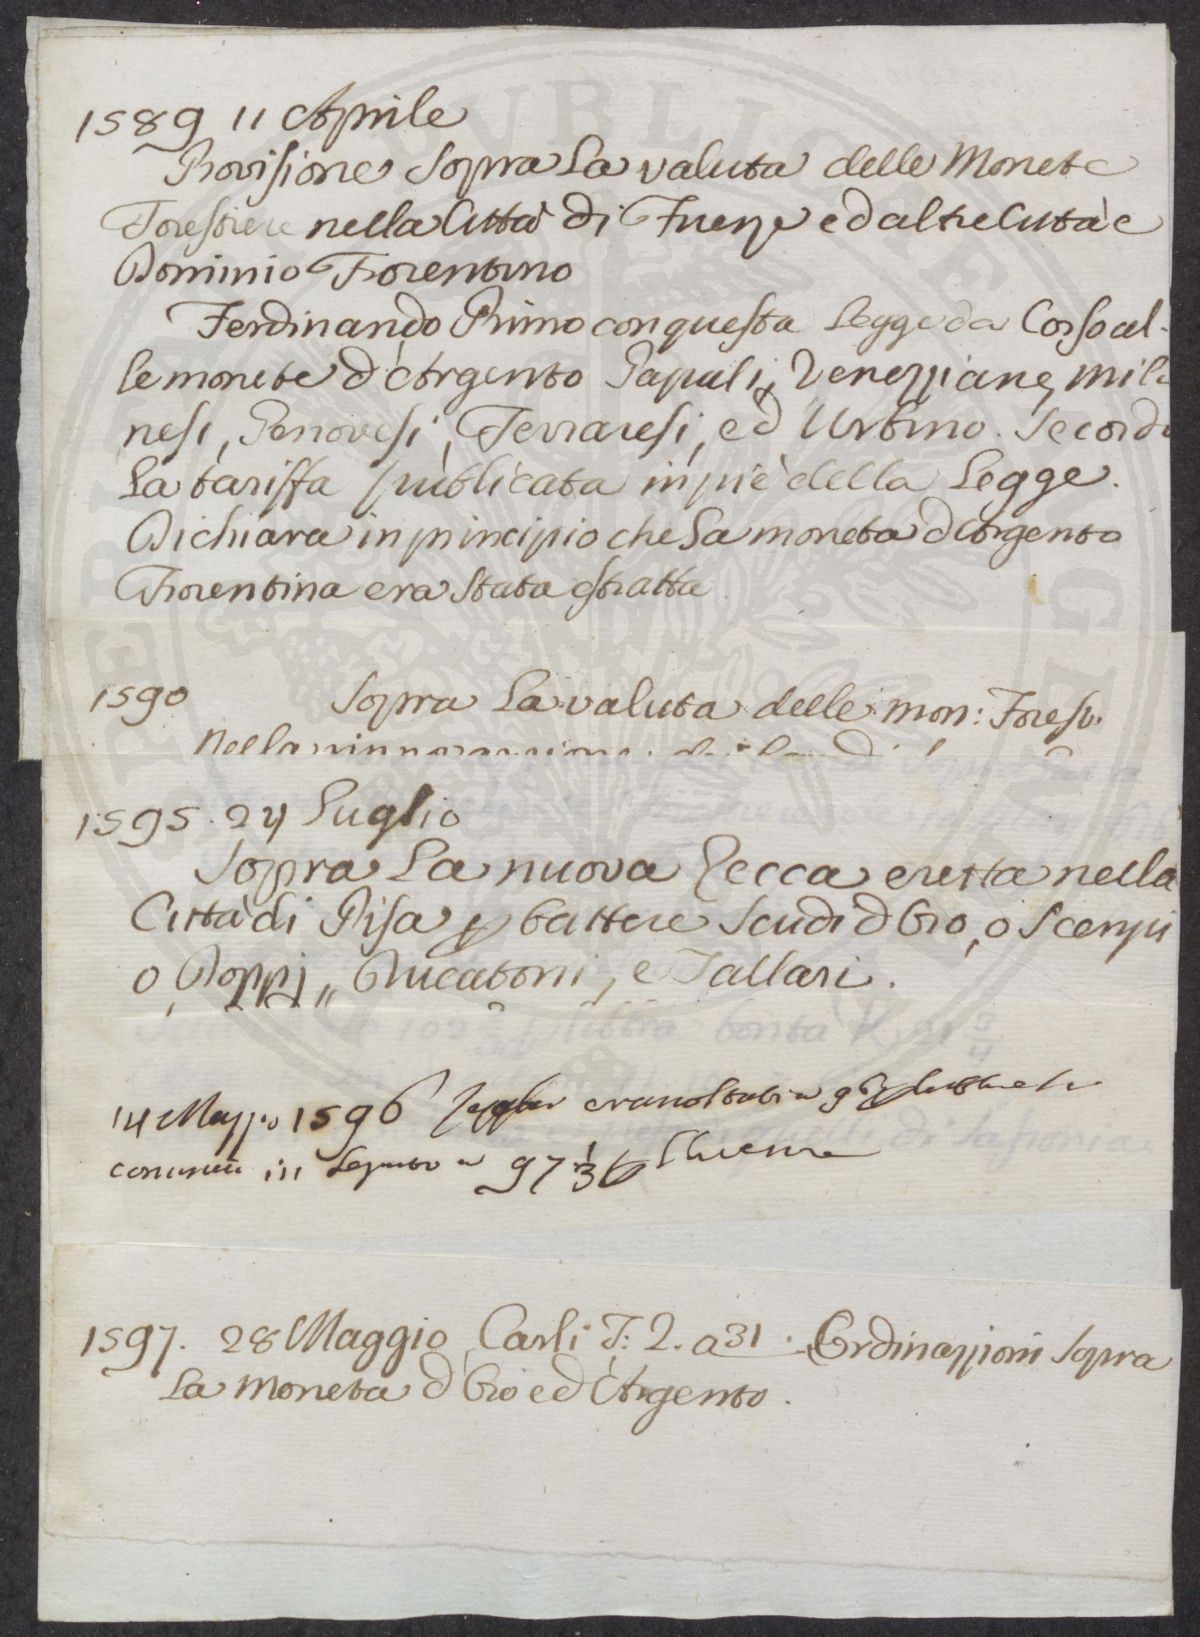 1589 11 Aprile
Provisione Sopra La valuta delle Monete
Forestiere nella Città di Firenze ed altre Citta e
Dominio Fiorentino
Ferdinando Primo con questa Legge da Corso al-
le monete d'Argento Papali, Veneziane, Mila
nesi, Genovesi, Ferraresi, ed Urbino. Secondo
La tariffa pubblicata in piè della Legge.
Dichiara in principio che La moneta d'Argento
Fiorentina era Stata estratta
1590 Sopra La valuta delle mon: Forest.
Nella
1595. 24 Luglio
Sopra La nuova Zecca eretta nella
Città di Pisa p battere Scudi d'Oro, o Scempi
o Doppj, Ducatoni, e Tallari.
14 Maggio 1596
in 97 1/3
1597. 28 Maggio Carli T: 2. a 31. Ordinazioni Sopra
La Moneta d'Oro ed Argento.